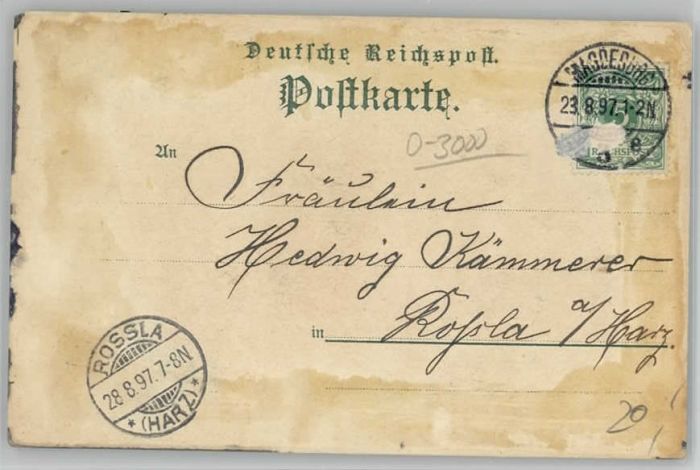 Deutsche Reichspost.
Postkarte.
MAGDEBURG
23.8.97.1-2N
e
5
REICHSPOST
0-3000
An
Fräulein
Hedwig Kämmerer
in Roßla a/Harz.
ROSSLA
28.8.97.7-8N
* (HARZ) *
20